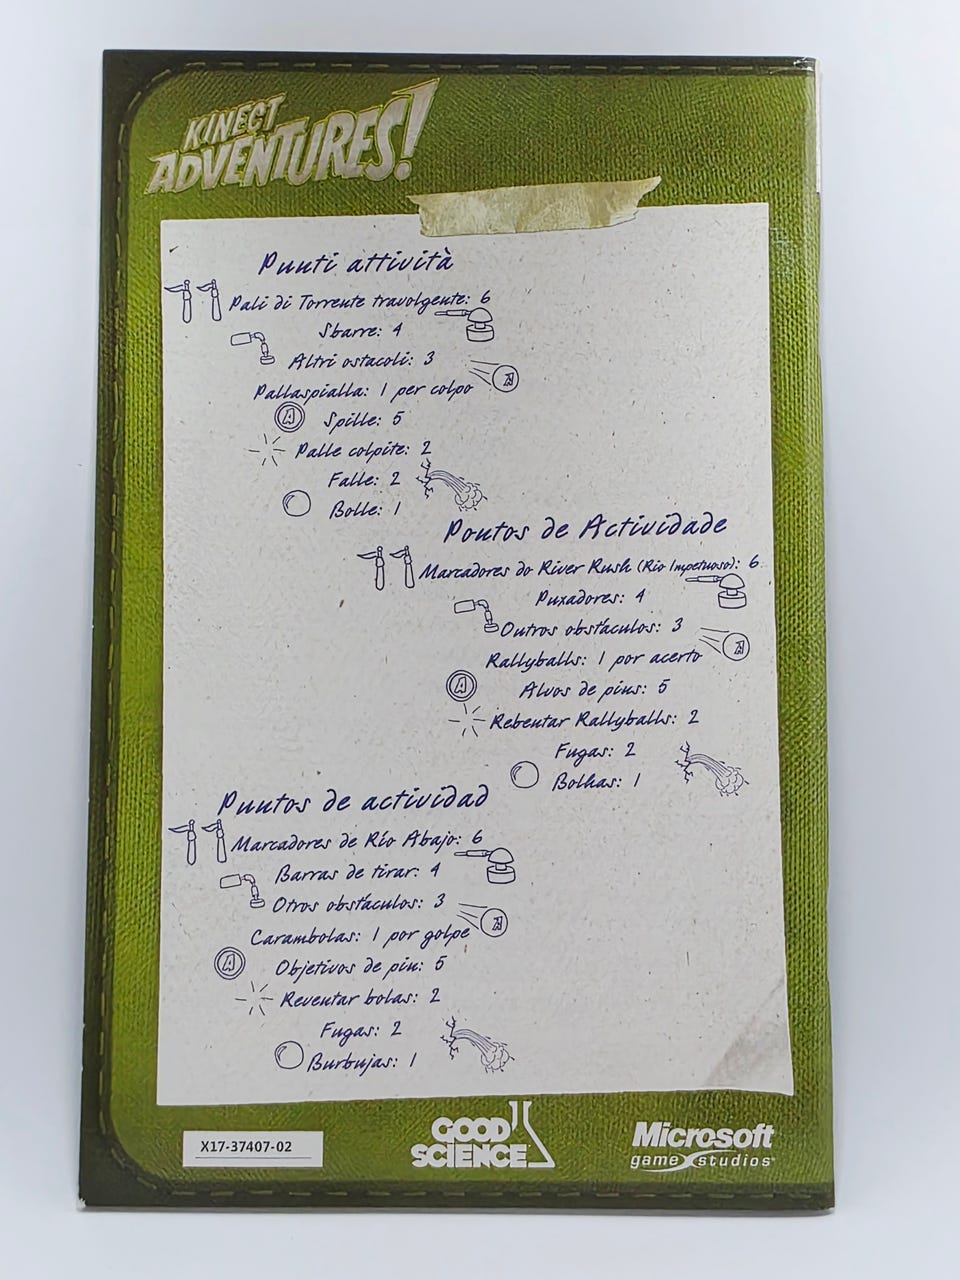 KINECT
ADVENTURES!
Punti attività
Pali di Torrente travolgente: 6
Sbarre: 4
Altri ostacoli: 3
Pallaspialla: 1 per colpo
Spille: 5
Palle colpite: 2
Falle: 2
Bolle: 1
Pontos de Actividade
Marcadores do River Rush (Rio Impetuoso): 6
Puxadores: 4
Outros obstáculos: 3
Rallyballs: 1 por acerto
Alvos de pins: 5
Rebentar Rallyballs: 2
Fugas: 2
Bolhas: 1
Puntos de actividad
Marcadores de Río Abajo: 6
Barras de tirar: 4
Otros obstáculos: 3
Carambolas: 1 por golpe
Objetivos de pin: 5
Reventar bolas: 2
Fugas: 2
Burbujas: 1
X17-37407-02
GOOD
SCIENCE
Microsoft
game studios